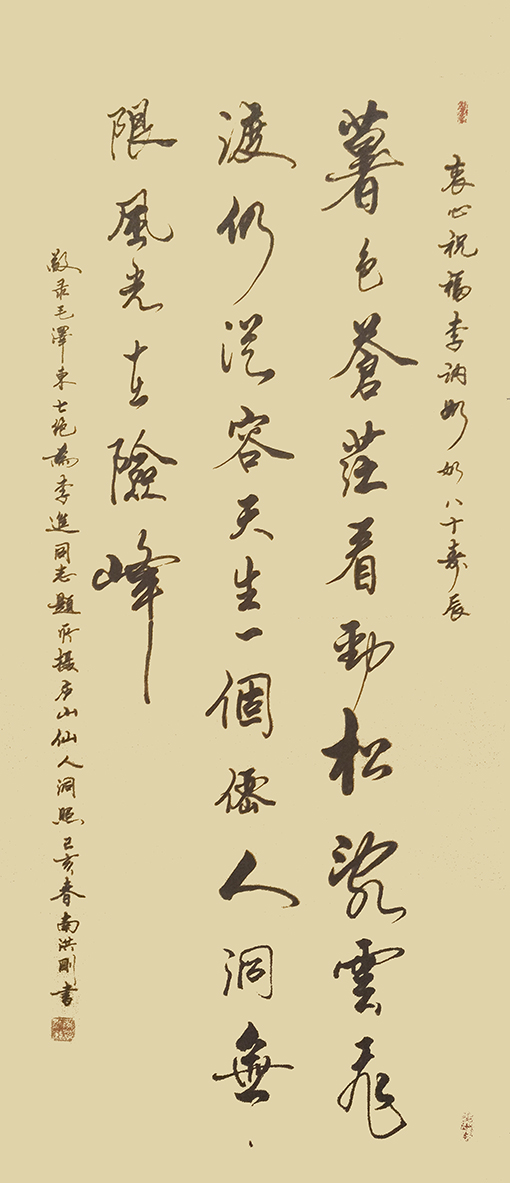 衷心祝福李訥八十寿辰
暮色蒼茫看勁松亂雲飛
渡仍從容天生一個僊人洞無
限風光在險峰
敬录毛澤東七绝為李進同志题所摄庐山仙人洞照己亥春南洪剛書